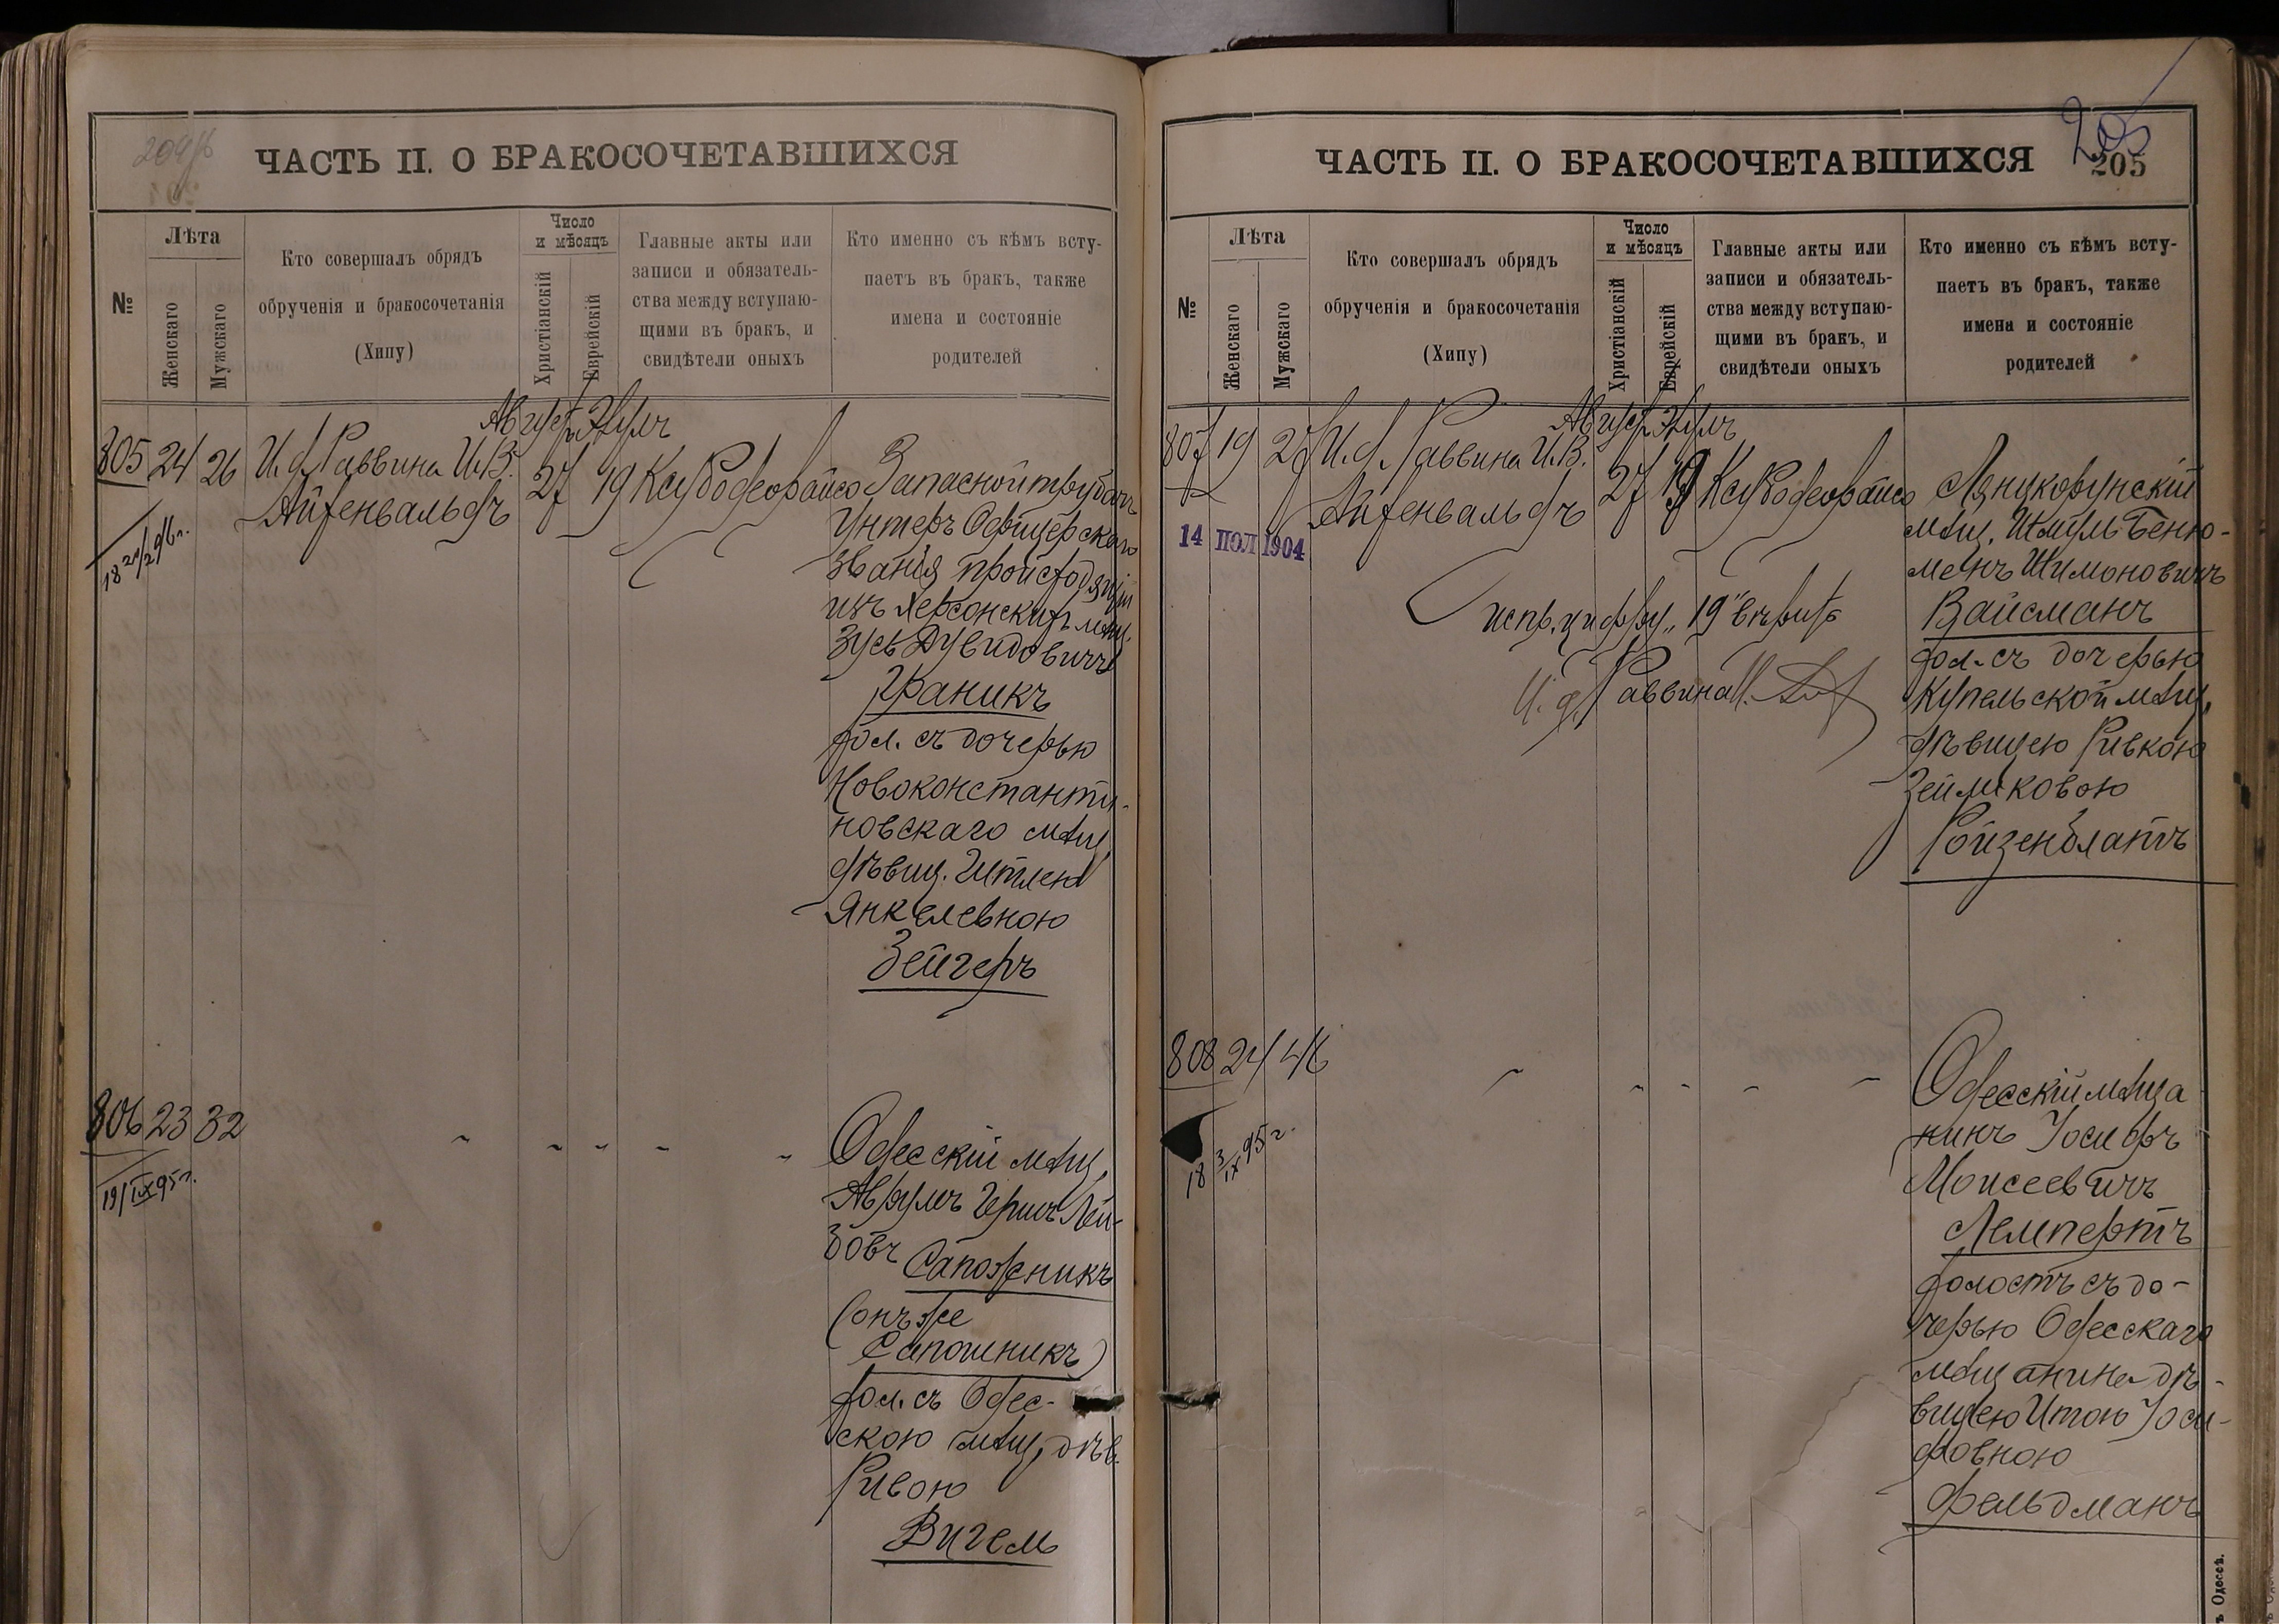 204об
ЧАСТЬ II. О БРАКОСОЧЕТАВШИХСЯ
№
Лѣта
Женскаго
Мужскаго
Кто совершалъ обрядъ
обрученія и бракосочетанія
(Хипу)
Число
и мѣсяцъ
Христіанскій
Еврейскій
Главные акты или
записи и обязатель-
ства между вступаю-
щими въ бракъ, и
свидѣтели оныхъ
Кто именно съ кѣмъ всту-
паетъ въ бракъ, также
имена и состояніе
родителей
Август. Элулъ
805 24 26 И. д. Раввина И. В. 27 19
Айзенвальдъ
Запасной трубачъ
Унтеръ Офицерскаго
званія происходящій
изъ Херсонскихъ мѣщ.
Зусь Дувидовичъ
Граникъ
хол. съ дочерью
Новоконстанти-
новскаго мѣщ.
дѣвиц. Гитлею
Янкелевною
Зейгеръ
806 23 32
19/IX 95 г.
Одесскій мѣщ.
Аврумъ Гершъ Лей-
зовъ Сапожникъ
(онъ же
Сапошникъ)
хол. съ Одес-
скою мѣщ. дѣв.
Ривою
Вигель
205
205
ЧАСТЬ II. О БРАКОСОЧЕТАВШИХСЯ
№
Лѣта
Женскаго
Мужскаго
Кто совершалъ обрядъ
обрученія и бракосочетанія
(Хипу)
Число
и мѣсяцъ
Христіанскій
Еврейскій
Главные акты или
записи и обязатель-
ства между вступаю-
щими въ бракъ, и
свидѣтели оныхъ
Кто именно съ кѣмъ всту-
паетъ въ бракъ, также
имена и состояніе
родителей
Август. Элулъ
807 19 27 И. д. Раввина И. В. 27 19
Айзенвальдъ
14 1904
испр. цифру „19" вѣрить
И. д. Раввина
Лянцкорунскій
мѣщ. Шмуль Беню-
менъ Шимоновичъ
Вайсманъ
хол. съ дочерью
Купельской мѣщ.
дѣвицею Ривкою
Зейликовою
Ройзенблатъ
808 24 46
18 3/IX 95 г.
Одесскій мѣща
нинъ Іосифъ
Моисеевичъ
Лемпертъ
холостъ съ до-
черью Одесскаго
мѣщанина дѣ-
вицею Итою Іоси-
фовною
Фельдманъ
ъ Одессѣ.